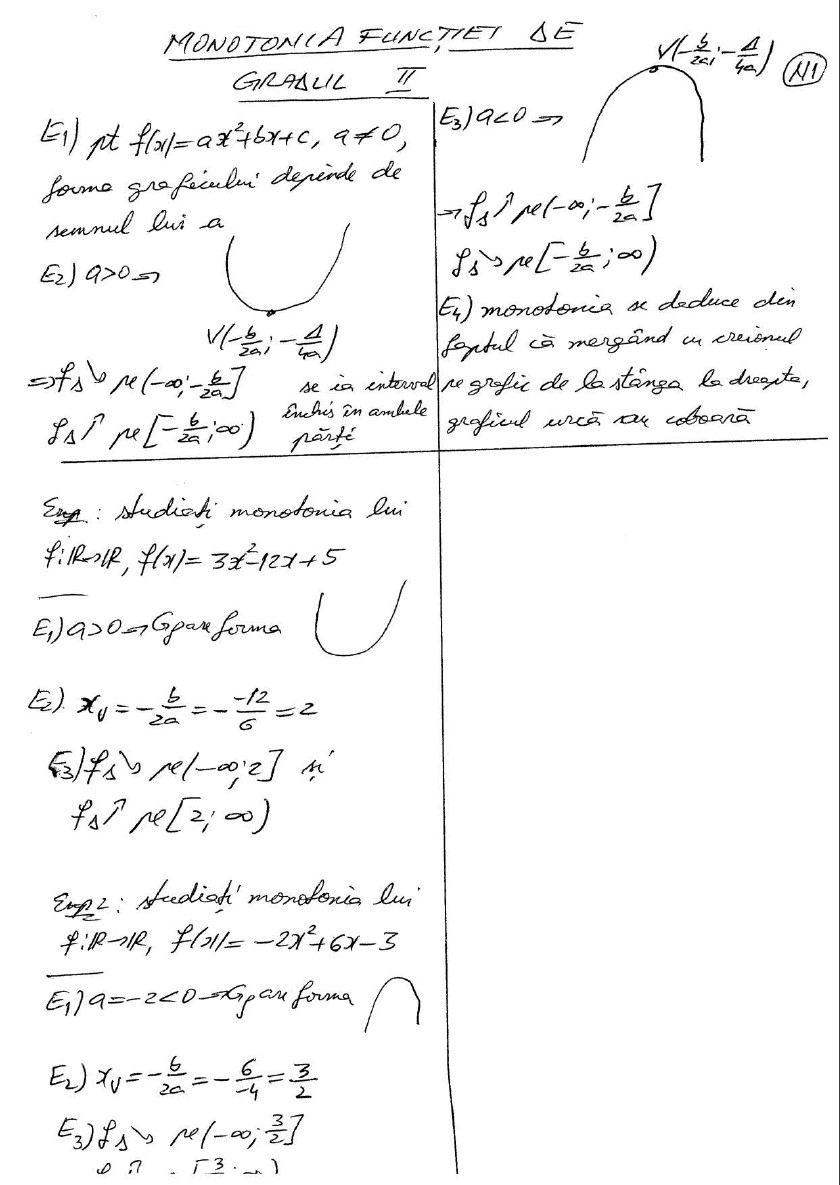 MONOTONIA FUNCȚIEI DE
GRADUL II
N1
E1) pt f(x)=ax²+bx+c, a≠0,
forma graficului depinde de
semnul lui a
E2) a>0⇒
V(-b/2a; -Δ/4a)
⇒fs↘ pe(-∞;-b/2a]
fs↗ pe[-b/2a;∞)
se ia interval
închis în ambele
părți
V(-b/2a; -Δ/4a)
E3) a<0 ⇒
⇒fs↗ pe(-∞;-b/2a]
fs↘ pe[-b/2a;∞)
E4) monotonia se deduce din
faptul că mergând cu creionul
pe grafic de la stânga la dreapta,
graficul urcă sau coboară
Exp: studiați monotonia lui
f:ℝ→ℝ, f(x)= 3x²-12x+5
E1) a>0⇒Gf are forma
E2). xv=-b/2a=-(-12)/6=2
E3) fs↘ pe(-∞;2] și
fs↗ pe[2;∞)
Exp2: studiați monotonia lui
f:ℝ→ℝ, f(x)= -2x²+6x-3
E1) a=-2<0⇒Gf are forma
E2) xv=-b/2a=-6/-4=3/2
E3) fs↘ pe(-∞;3/2]